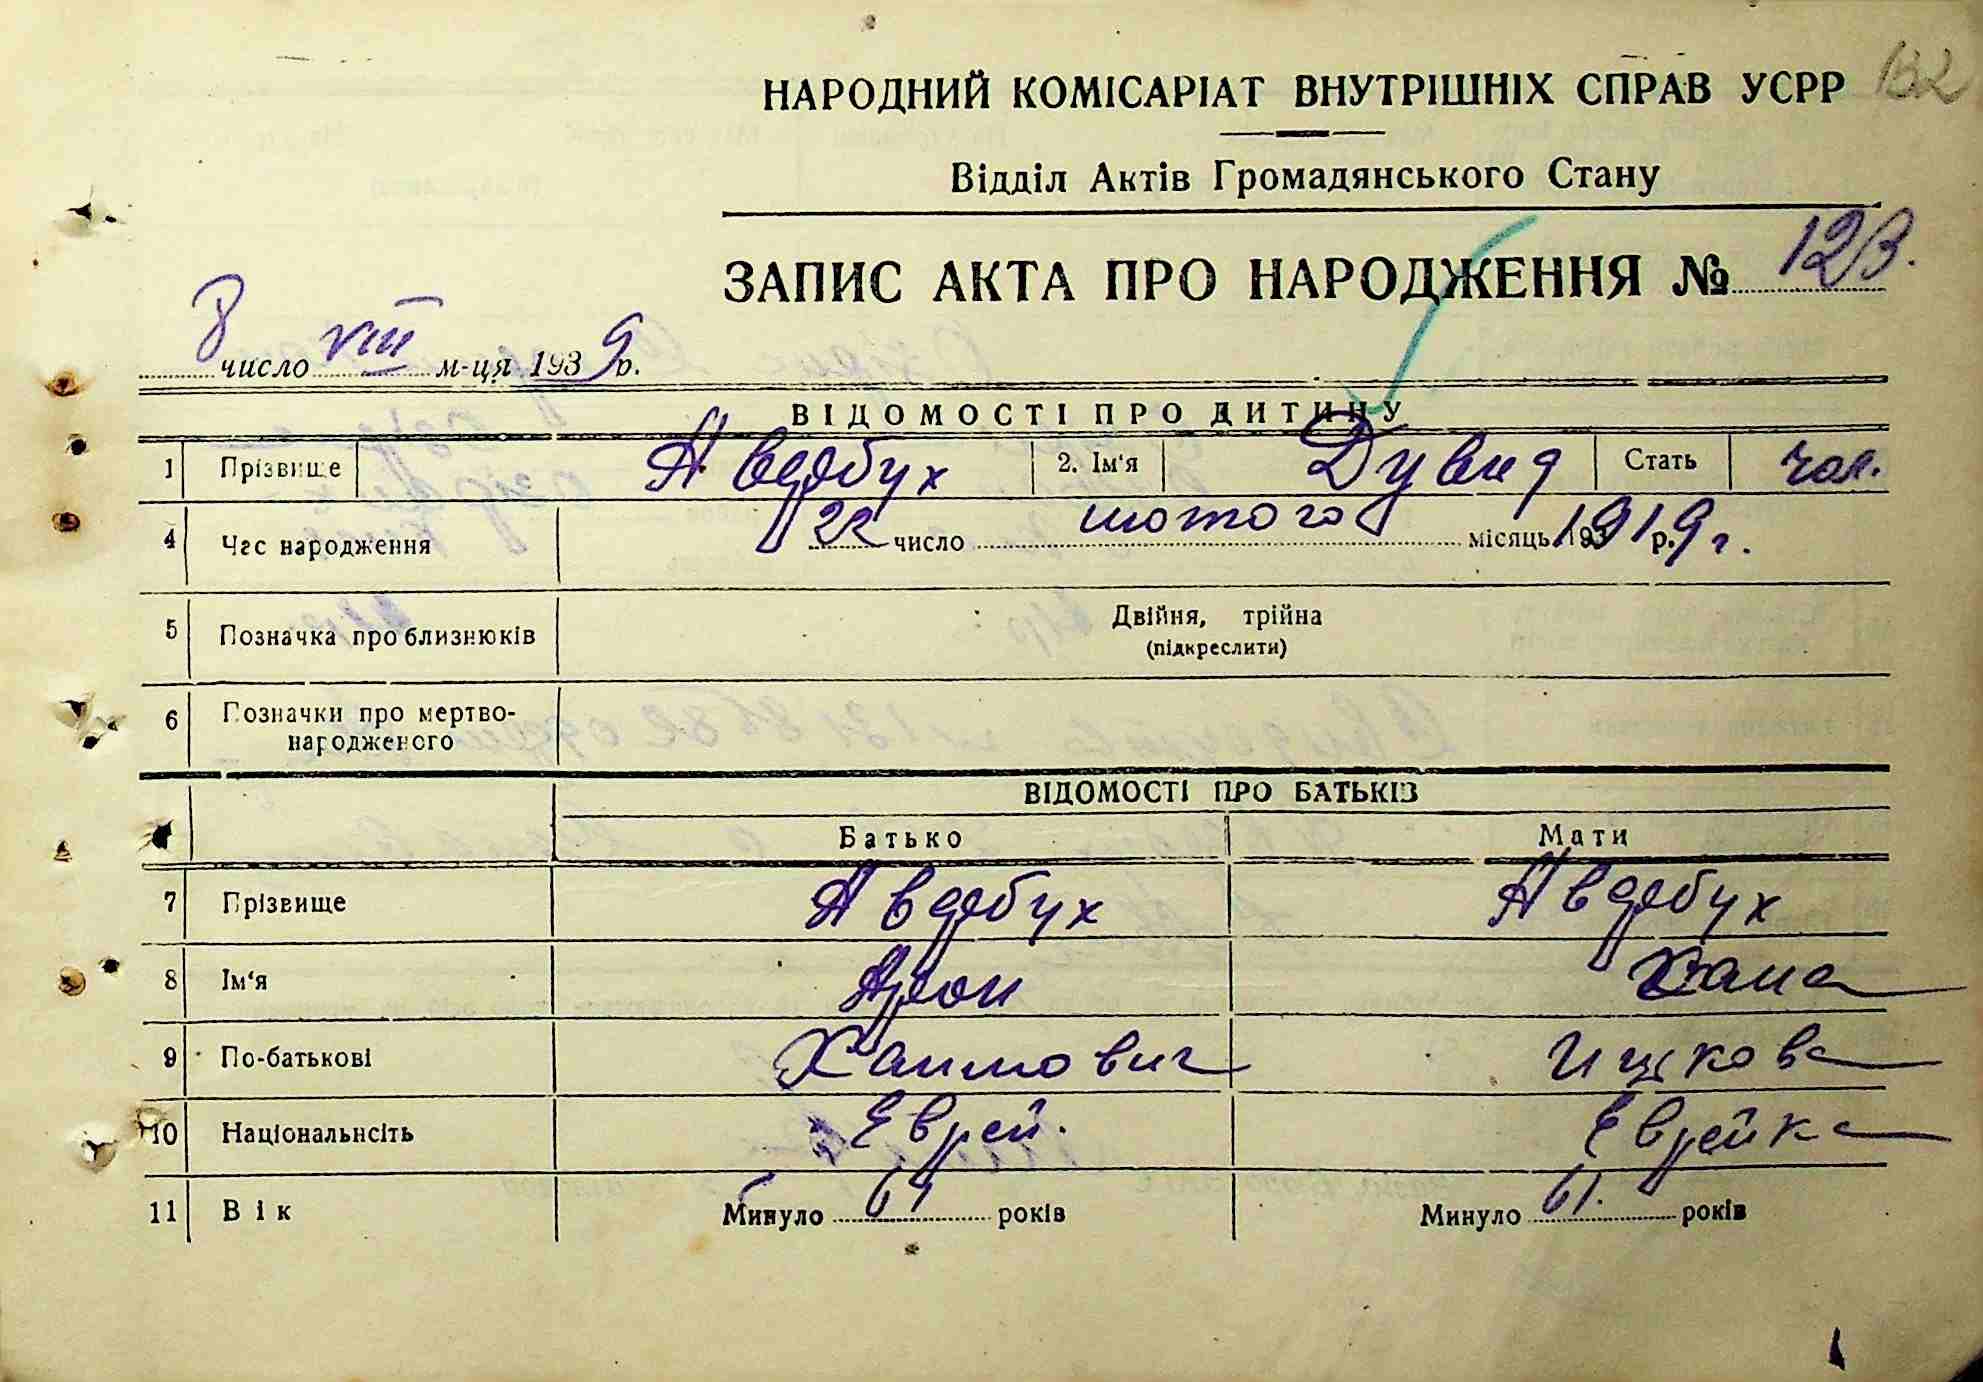 132
НАРОДНИЙ КОМІСАРІАТ ВНУТРІШНІХ СПРАВ УСРР
Відділ Актів Громадянського Стану
ЗАПИС АКТА ПРО НАРОДЖЕННЯ № 123.
8 число VIII м-ця 1939 р.
ВІДОМОСТІ ПРО ДИТИНУ
1 Прізвище Авербух 2. Ім'я Дувид Стать чол.
4 Час народження 22 число лютого місяць 1919 г.
5 Позначка про близнюків Двійня, трійна
(підкреслити)
6 Позначки про мертво-
народженого
ВІДОМОСТІ ПРО БАТЬКІВ
Батько Мати
7 Прізвище Авербух Авербух
8 Ім'я Арон Хана
9 По-батькові Хаимович Ицкова
10 Національнсіть Еврей. Еврейка
11 Вік Минуло 64 років Минуло 61. років